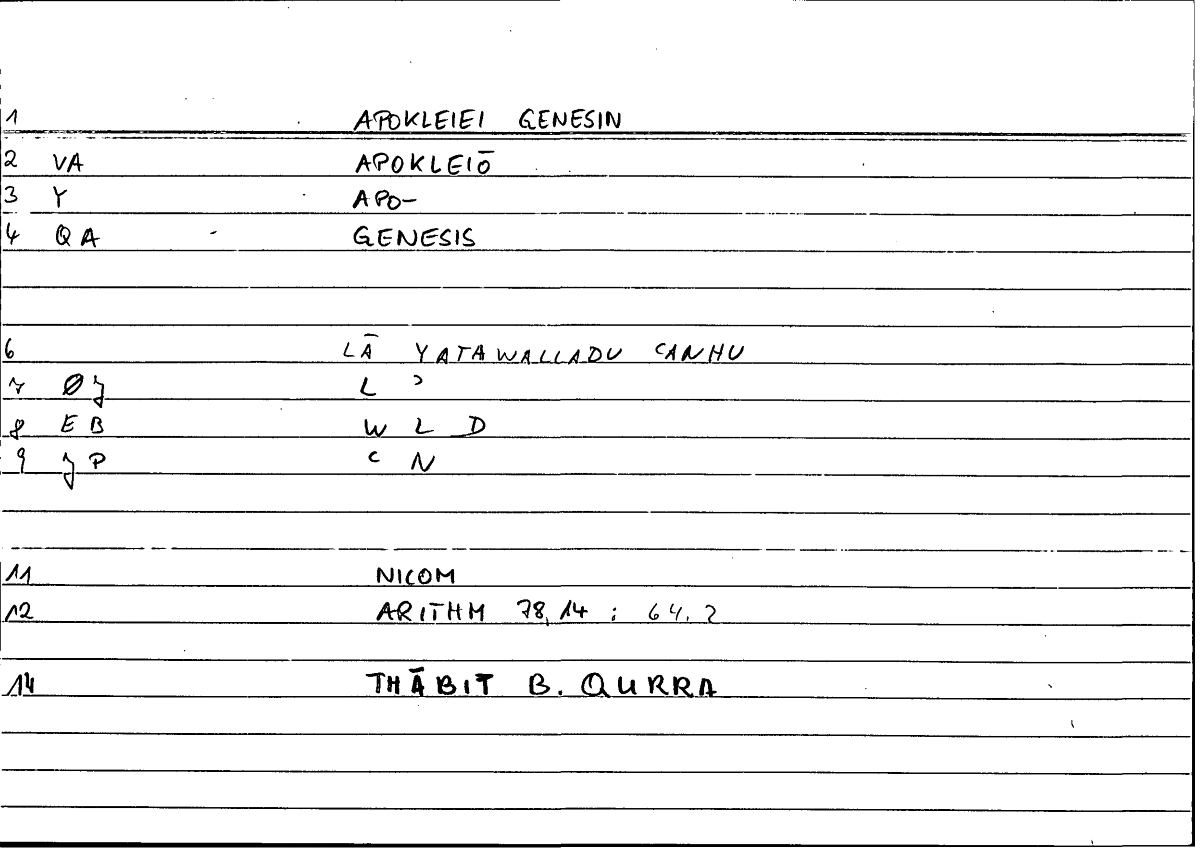 1 APOKLEIEI GENESIN
2 VA APOKLEIŌ
3 Y APO-
4 QA GENESIS
6 LĀ YATAWALLADU ʿANHU
7 ØJ L ʾ
8 EB W L D
9 JP ʿ N
11 NICOM
12 ARITHM 78,14 : 64.2
14 THĀBIT B. QURRA